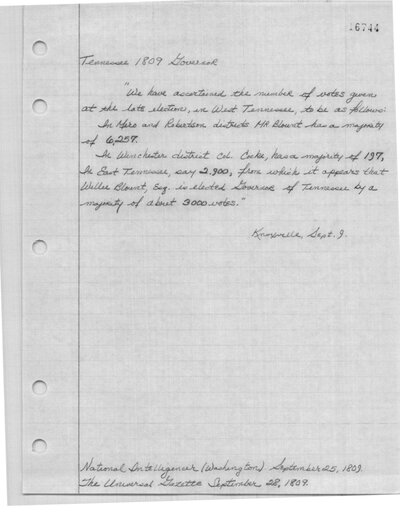 16744
Tennessee 1809 Governor
"We have ascertained the number of votes given
at the late election, in West Tennessee, to be as follows:
In Mero and Robertson districts Mr Blount has a majority
of 6,257.
In Winchester district Col. Cocke, has a majority of 197,
In East Tennessee, say 2,900, from which it appears that
Willie Blount, Esq. is elected Governor of Tennessee by a
majority of about 3000 votes."
Knoxville, Sept. 9.
National Intelligencer (Washington) September 25, 1809.
The Universal Gazette September 28, 1809.